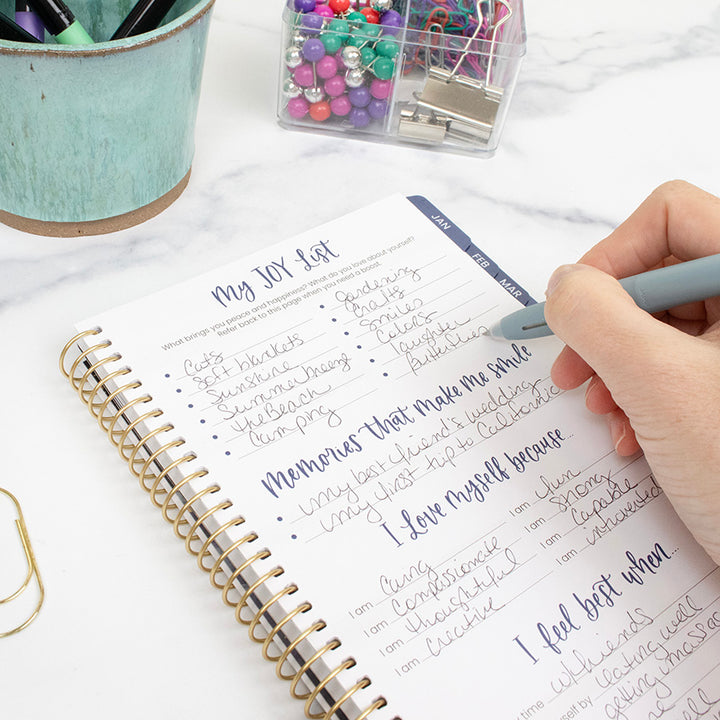 JAN
FEB
MAR
My JOY List
What brings you peace and happiness? What do you love about yourself?
Refer back to this page when you need a boost.
Cats
Soft blankets
Sunshine
Summer breeze
the Beach
Camping
Gardening
Crafts
Smiles
Colors
laughter
Butterflies
Memories that make me smile
my best friend's wedding
my first trip to California
I love myself because...
I am caring
I am compassionate
I am thoughtful
I am creative
I am fun
I am strong
I am capable
I am introverted
I feel best when...
time w/friends
self by eating well
getting massa